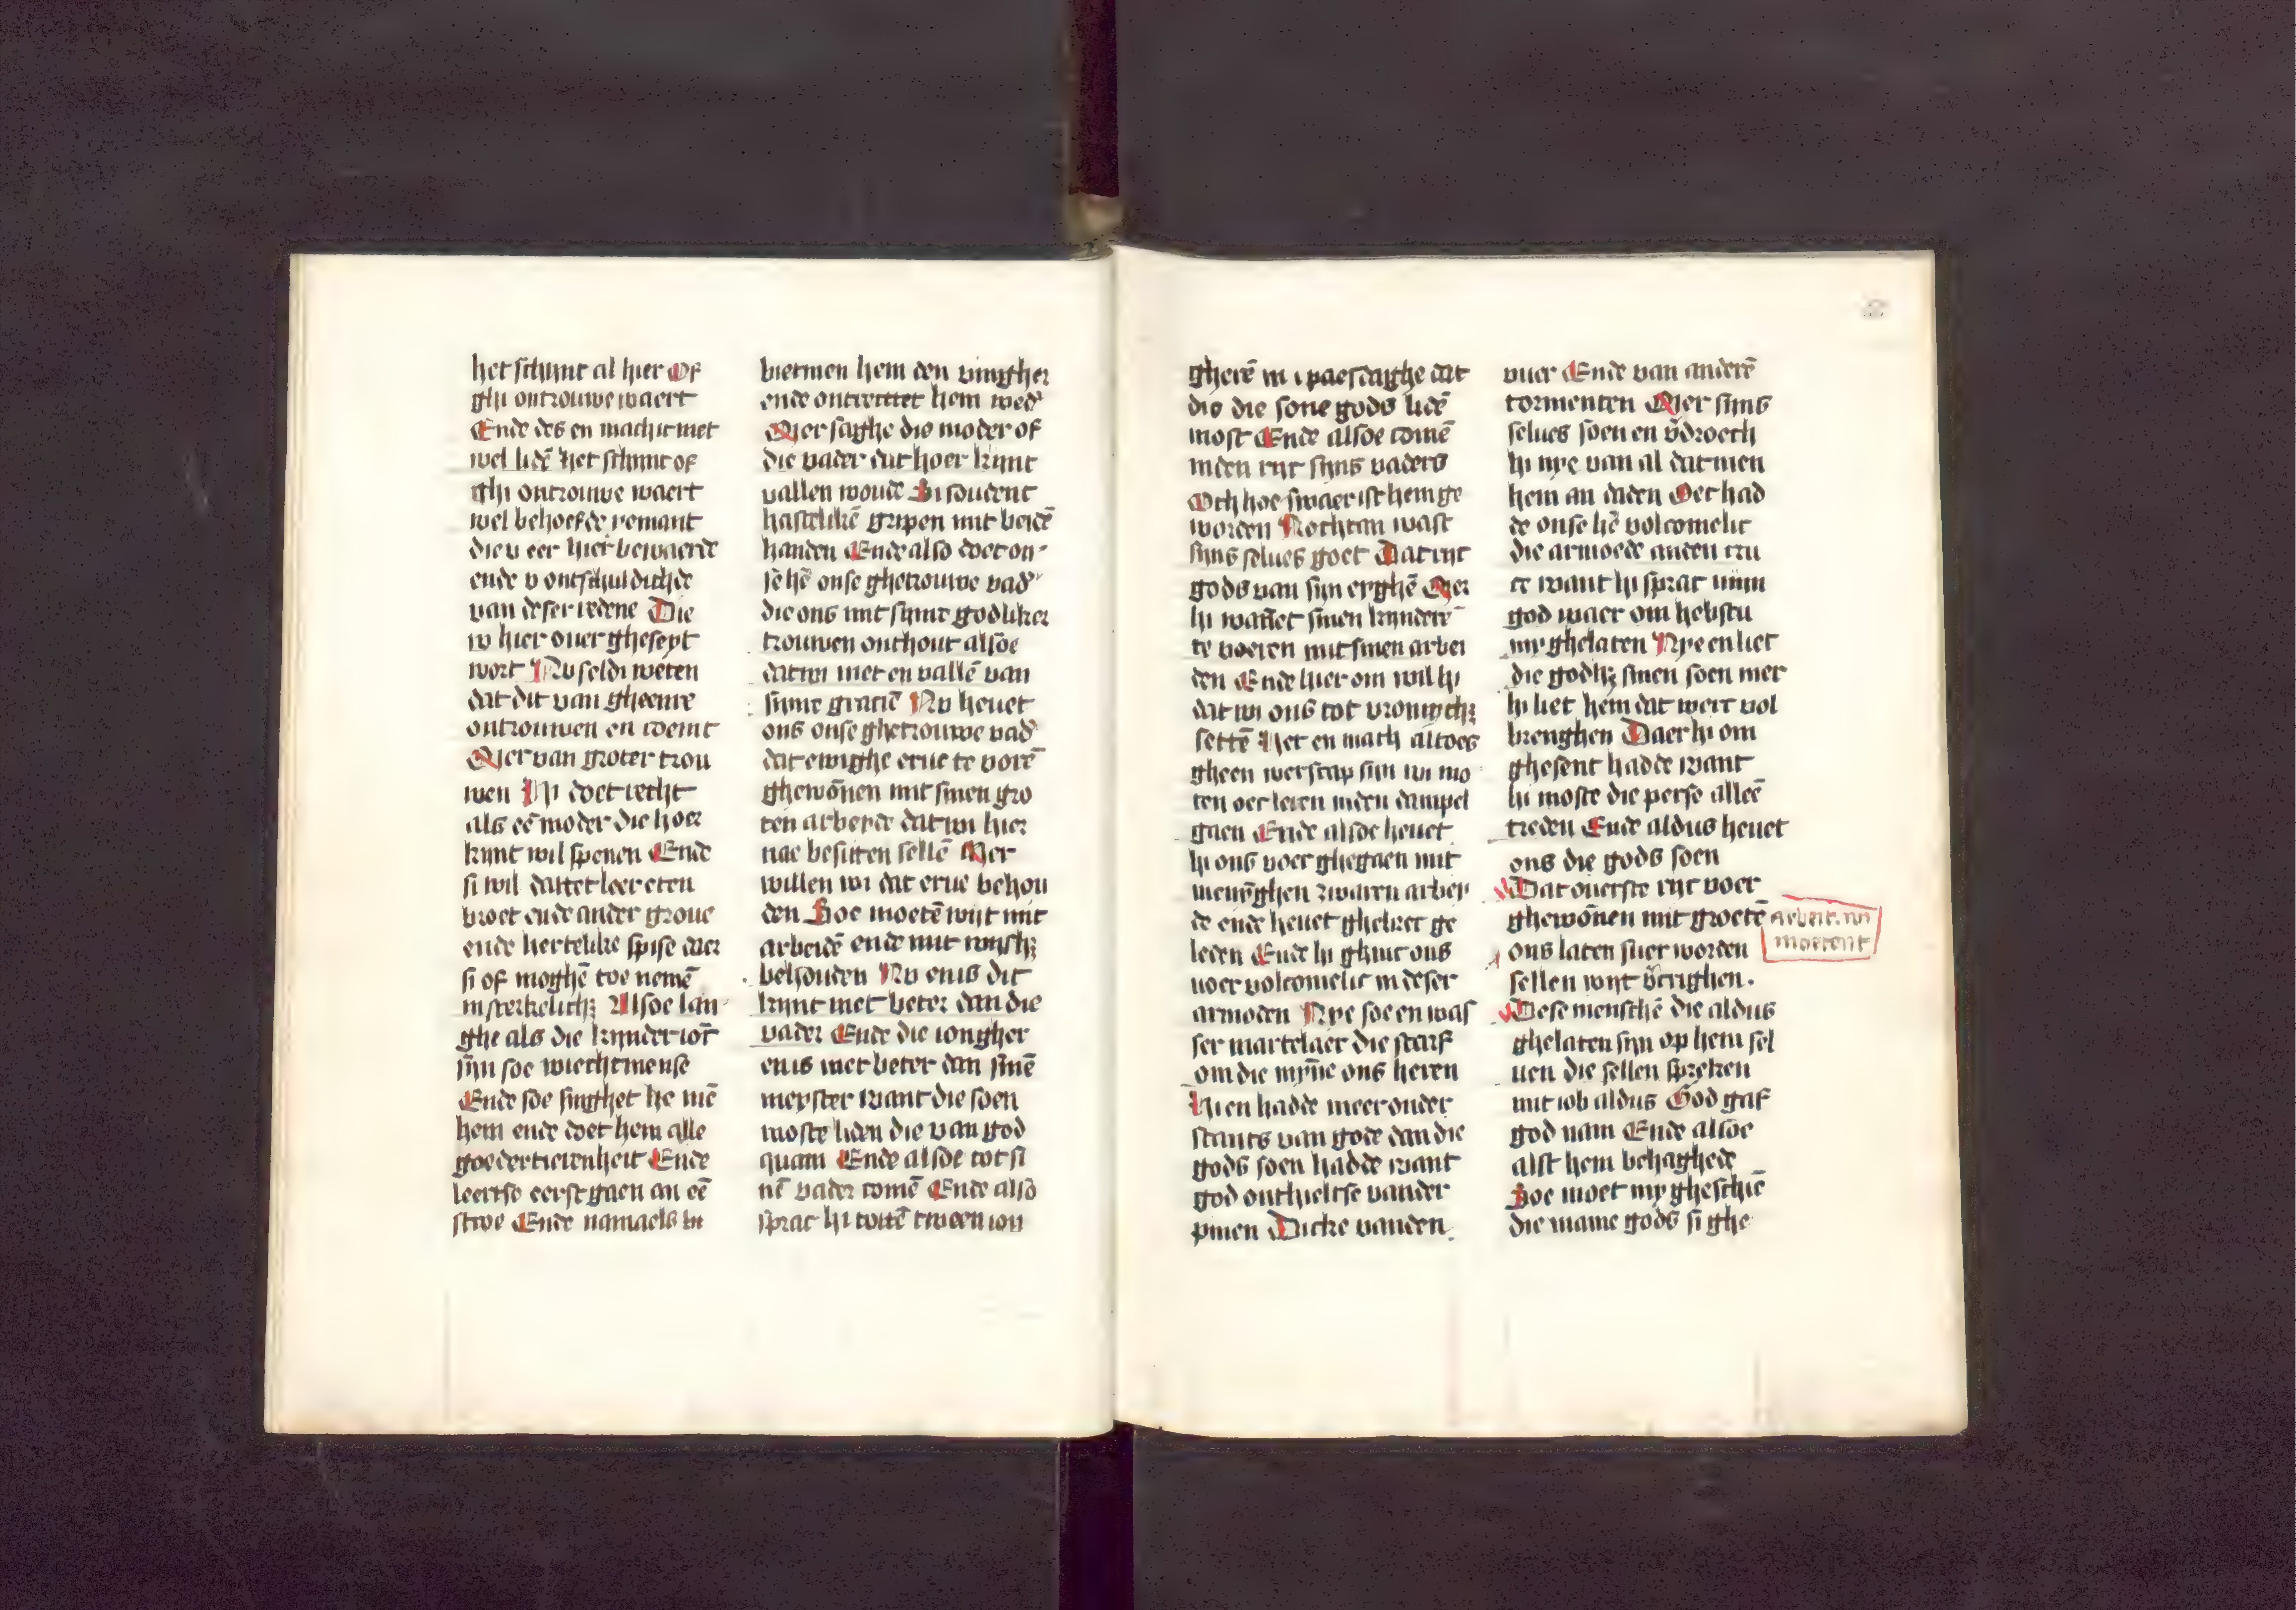 het schijnt al hier Of
ghi ontrouwe waert
Ende des en mach ic niet
wel lidē het schijnt of
ghi ontrouwe waert
wel behoefde yemant
die u eer hier bewaerde
ende v ontschuldichde
van deser redene Die
w hier ouer ghesept
wort Nv seldi weten
dat dit van gheenre
ontrouwen en coemt
Mer van groter trou
wen Hi doet recht
als eē moder die hoer
kijnt wil spenen Ende
si wil dattet leer eten
broet ende ander groue
ende hertelike spise daer
si of moghē toe nemē
in sterkelich; Alsoe lan
ghe als die kijnder ior̄
sijn soe wiechtmense
Ende soe singhet he mē
hem ende doet hem alle
goedertierenheit Ende
leertse eerst gaen an eē
stroe Ende namaels bi
bietmen hem den vingher
ende ontrecttet hem wed'
Mer saghe die moder of
die vader dat hoer kijnt
vallen woude Si soudent
hastelikē gripen mit beidē
handen Ende also doet on
se hē onse ghetrouwe vad'
die ons mit sijnre godliker
trouwen onthout alsoe
dat wi niet en vallē van
sijnre graciē Nv heuet
ons onse ghetrouwe vad'
dat ewighe erue te vorē
ghewōnen mit sinen gro
ten arbeyde dat wi hier
nae besitten sellē Mer
willen wi dat erue behou
den Soe moetē wijt mit
arbeidē ende mit
behouden Nv enis dit
kijnt niet beter dan die
vader Ende die iongher
en is niet beter dan sinē
meyster want die soen
moste liden die van god
quam Ende alsoe tot si
nē vader comē Ende also
sprac hi tottē tween ion
gherē in paeschdaghe dat
die die sone gods lidē
most Ende alsoe comē
inden rijc sijns vaders
Och hoe swaer ist hem ge
worden Nochtan wast
sijns selues goet Dat rijc
gods van sijn eyghē Mer
hi wan̄et sinen kijnderē
te voeren mit sinen arbei
den Ende hier om wil hi
dat wi ons tot vromich;
settē Het en mach altoes
gheen werscap sijn wi mo
ten oec leren inden campel
gaen Ende alsoe heuet
hi ons voer ghegaen mit
menighen zwaren arbey
de ende heuet ghelaer ge
leden Ende hi ghinc ons
voer volcomelic in deser
armoden Nye soe en was
ser martelaer die starf
om die mijn̄e ons heren
Hi en hadde meer onder
stants van gode dan die
gods soen hadde want
god onthieltse vander
pinen Dicke vanden
vuer Ende van anderē
tormenten Mer sijns
selues soen en v̄droech
hi nye van al dat men
hem an daden Oec had
de onse hē volcomelic
die armoede anden cru
ce want hi sprac mijn
god waer om hebstu
my ghelaten Nye en liet
die godh; sinen soen mer
hi liet hem dat werc vol
brenghen Daer hi om
ghesent hadde want
hi moste die perse alleē
treden Ende aldus heuet
ons die gods soen
Dat ouerste rijc voer
ghewōnen mit groetē arbeit. wi
moetent
ons laten suer worden
sellen wijt v̄crighen.
Dese menschē die aldus
ghelaten sijn op hem sel
uen die sellen spreken
mit iob aldus God gaf
god nam Ende alsoe
alst hem behaghede
Soe moet my gheschiē
die name gods si ghe